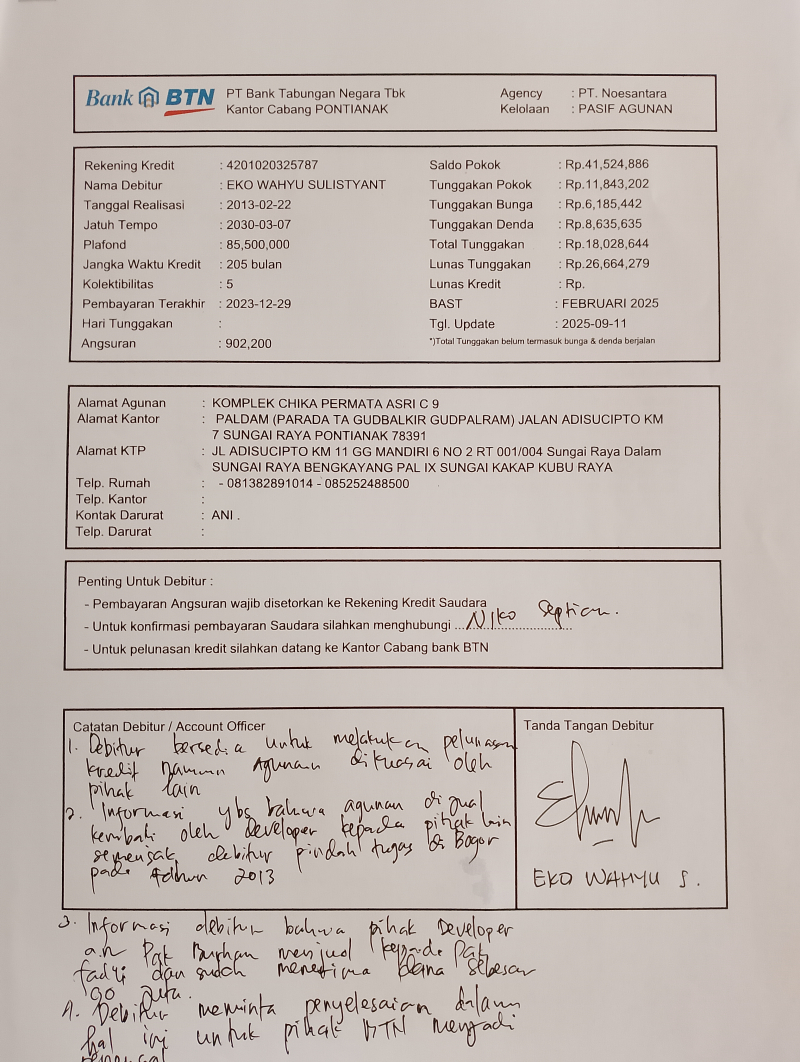 Bank BTN
PT Bank Tabungan Negara Tbk
Kantor Cabang PONTIANAK
Agency : PT. Noesantara
Kelolaan : PASIF AGUNAN
Rekening Kredit : 4201020325787
Nama Debitur : EKO WAHYU SULISTYANT
Tanggal Realisasi : 2013-02-22
Jatuh Tempo : 2030-03-07
Plafond : 85,500,000
Jangka Waktu Kredit : 205 bulan
Kolektibilitas : 5
Pembayaran Terakhir : 2023-12-29
Hari Tunggakan :
Angsuran : 902,200
Saldo Pokok : Rp.41,524,886
Tunggakan Pokok : Rp.11,843,202
Tunggakan Bunga : Rp.6,185,442
Tunggakan Denda : Rp.8,635,635
Total Tunggakan : Rp.18,028,644
Lunas Tunggakan : Rp.26,664,279
Lunas Kredit : Rp.
BAST : FEBRUARI 2025
Tgl. Update : 2025-09-11
*)Total Tunggakan belum termasuk bunga & denda berjalan
Alamat Agunan : KOMPLEK CHIKA PERMATA ASRI C 9
Alamat Kantor : PALDAM (PARADA TA GUDBALKIR GUDPALRAM) JALAN ADISUCIPTO KM
7 SUNGAI RAYA PONTIANAK 78391
Alamat KTP : JL ADISUCIPTO KM 11 GG MANDIRI 6 NO 2 RT 001/004 Sungai Raya Dalam
SUNGAI RAYA BENGKAYANG PAL IX SUNGAI KAKAP KUBU RAYA
Telp. Rumah : - 081382891014 - 085252488500
Telp. Kantor :
Kontak Darurat : ANI .
Telp. Darurat :
Penting Untuk Debitur :
- Pembayaran Angsuran wajib disetorkan ke Rekening Kredit Saudara
- Untuk konfirmasi pembayaran Saudara silahkan menghubungi ... Niko Septian.
- Untuk pelunasan kredit silahkan datang ke Kantor Cabang bank BTN
Catatan Debitur / Account Officer
1. Debitur bersedia untuk melakukan pelunasan
kredit namun Agunan dikuasai oleh
pihak lain
2. Informasi ybs bahwa agunan di jual
kembali oleh developer kepada pihak lain
semenjak debitur pindah tugas di Bogor
pada tahun 2013
Tanda Tangan Debitur
EKO WAHYU S.
3. Informasi debitur bahwa pihak Developer
a.n Pak Burhan menjual kepada Pak
fadli dan sudah menerima dana sebesar
90 juta.
4. Debitur meminta penyelesaian dalam
hal ini untuk pihak BTN menjadi